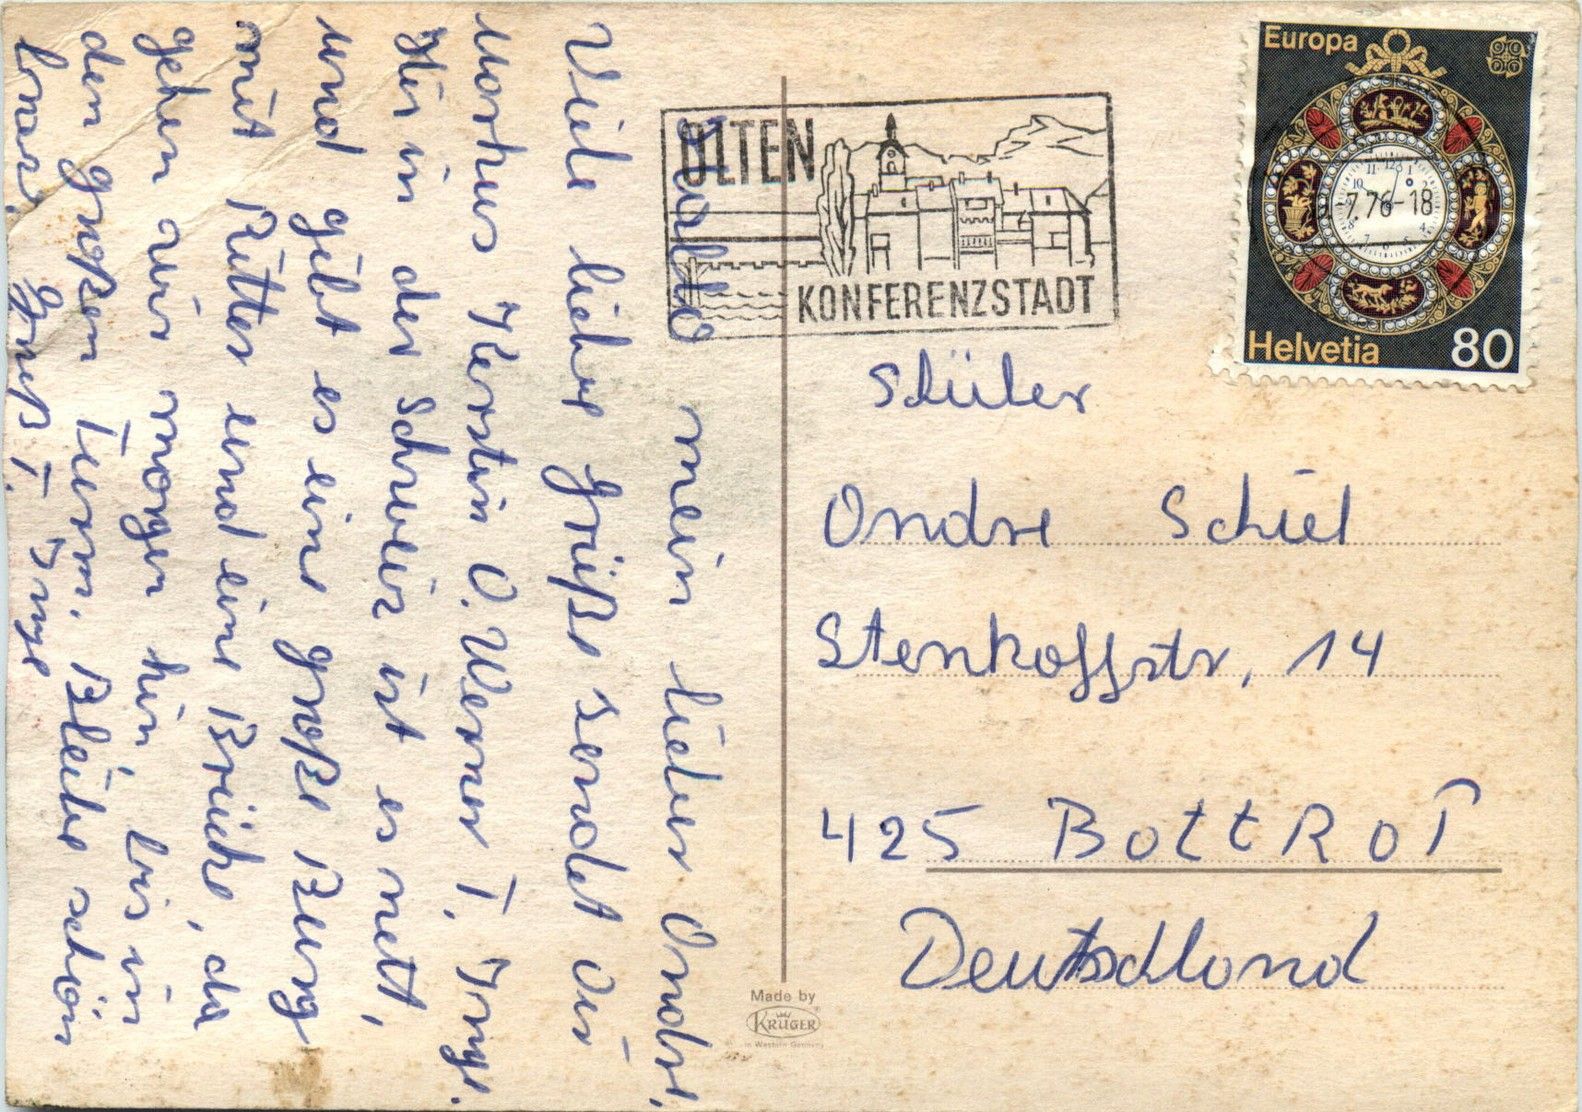 Hallo mein lieber Andre,
Viele liebe Grüße sendet dir
Kerstin O. Werner T. Inge.
Hir in der Schweiz ist es nett,
und gibt es eine große Burg
mit Ritter und eine Brücke, da
gehen wir morgen hin, bis in
den großen Turm. Bleibe schön
brav. Gruß T. Inge
OLTEN
KONFERENZSTADT
Europa
CEPT
7.76-18
Helvetia 80
Schüler
Andre Schiel
Stenkoffstr. 14
425 BottRoT
Deutschland
Made by
KRÜGER
in Western Germany